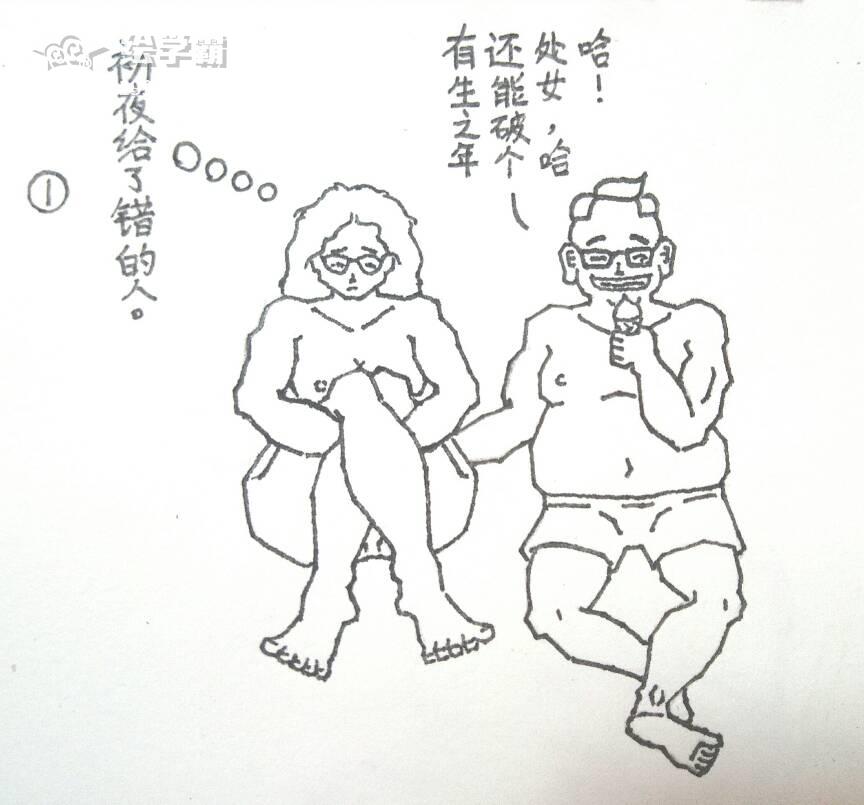 绘学霸
①
初夜给了错的人。
哈！
处女，哈
还能破个
有生之年